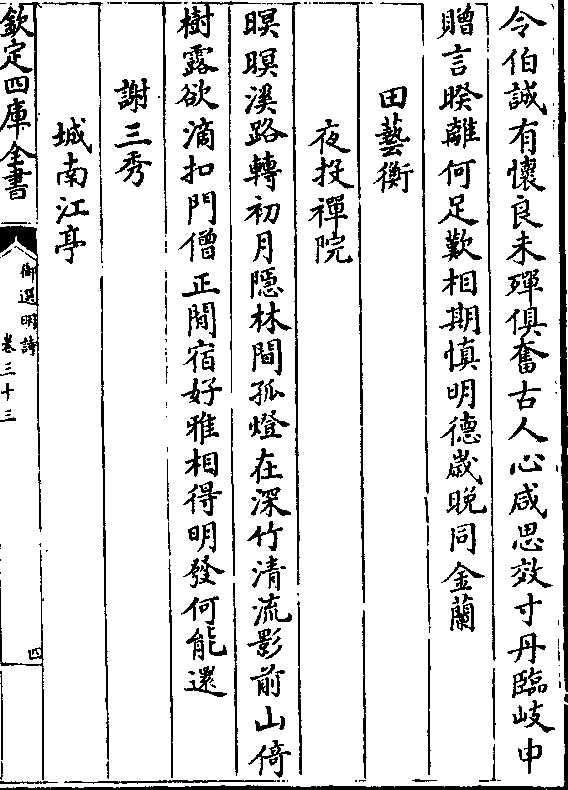 令伯誠有懷良未殫俱奮古人心咸思效寸丹臨岐申
贈言暌離何足歎相期慎明德歲晚同金蘭
田藝衡
夜投禪院
暝暝溪路轉初月隱林間孤燈在深竹清流影前山倚
樹露欲滴扣門僧正閒宿好雅相得明發何能還
謝三秀
城南江亭
欽定四庫全書
御選明詩
卷三十三
四